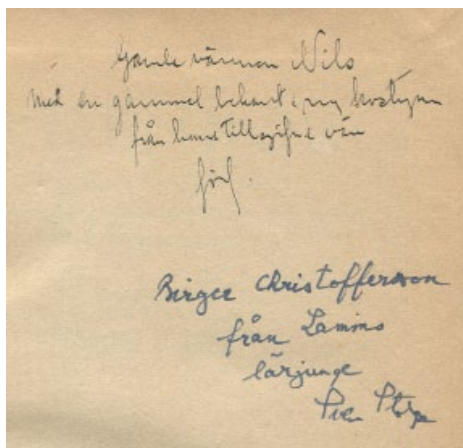 Gamle vännen Nils
med en gammal bekant i ny kostym
från hans tillgifne vän
förf.
Birger Christofferson
från Lamino
lärjunge
Sven Stolpe